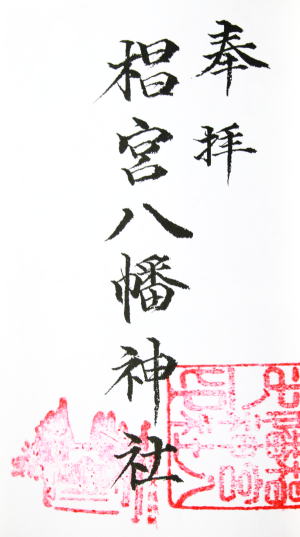 奉拝
椙宮八幡神社